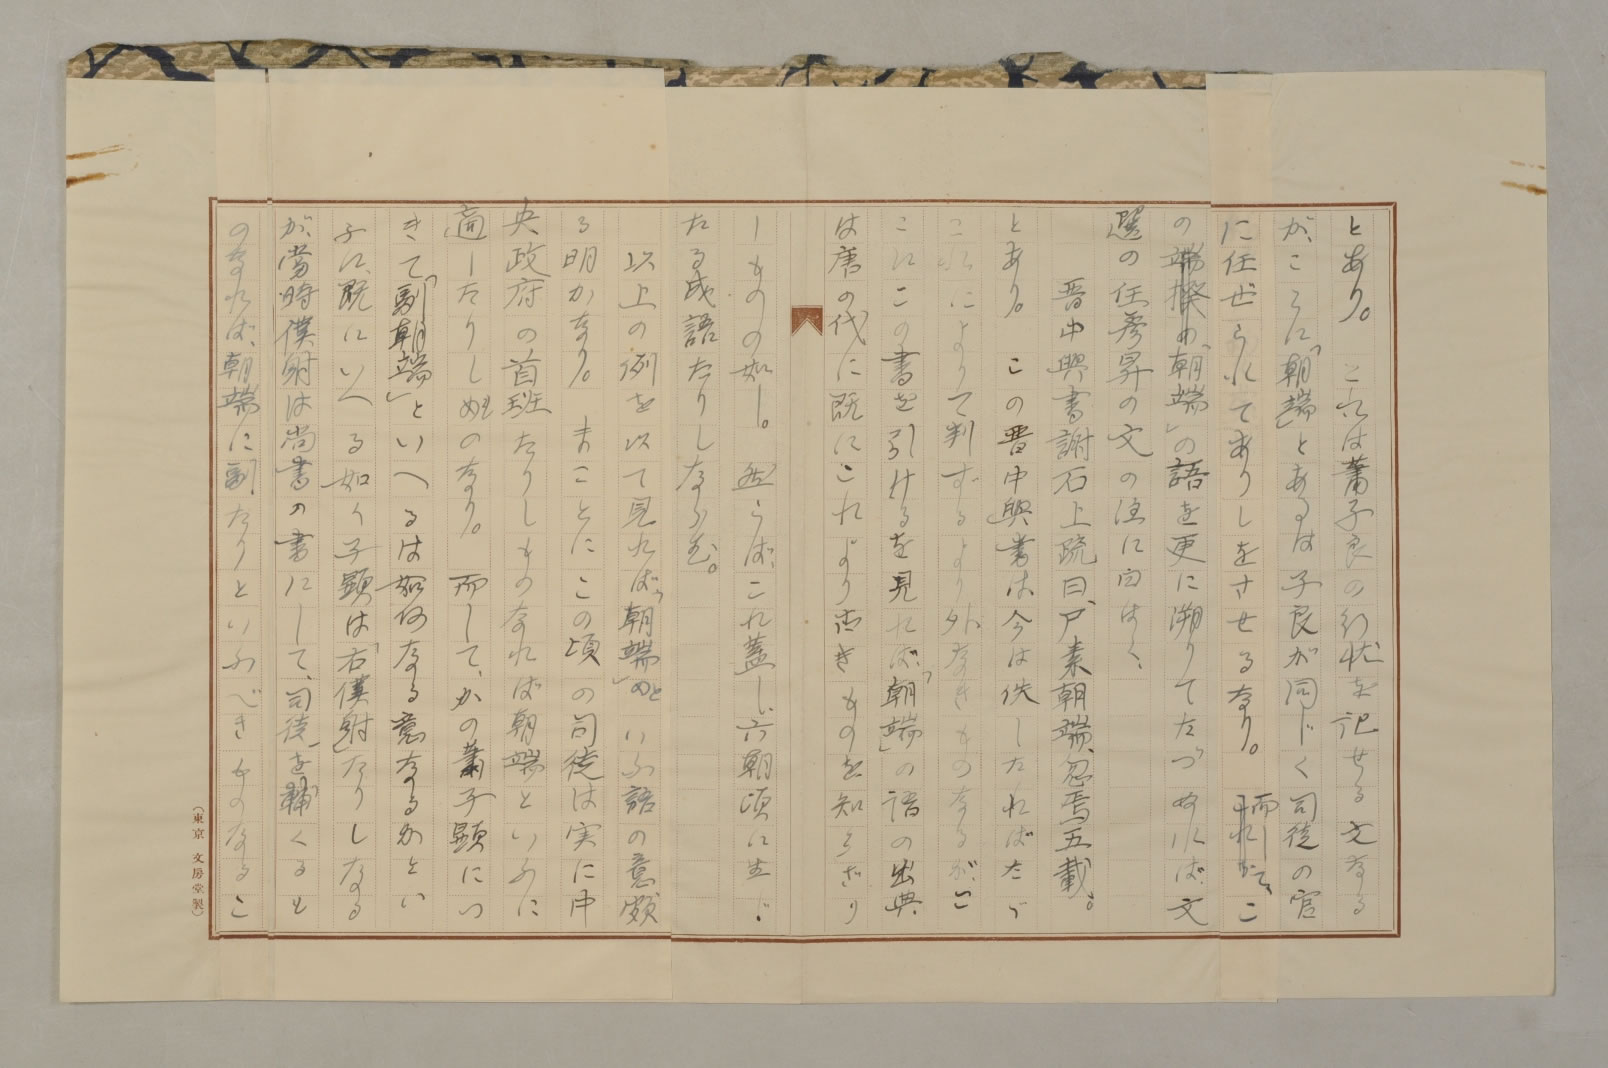 とあり。これは蕭子良の行状を記せる文なる
が、こゝに「朝端」とあるは子良が同じく司徒の官
に任ぜられてありしをさせるなり。而して、こ
の「朝端」の語を更に溯りてたづぬれば、文
選の任彦昇の文の注に曰はく、
晋中興書謝石上疏曰、尸素朝端、忽焉五載。
とあり。この晋中興書は今は佚したればたゞ
これによりて判ずるより外なきものなるが、こ
ゝにこの書を引けるを見れば、「朝端」の語の出典
は唐の代に既にこれより古きものを知らざり
しものゝ如し。然らば、これ蓋し、六朝頃に生じ
たる成語たりしならむ。
以上の例を以て見れば、「朝端」といふ語の意頗
る明かなり。まことにこの頃の司徒は実に中
央政府の首班たりしものなれば朝端といふに
適したりしものなり。而して、かの蕭子顕につ
きて「副朝端」といへるは如何なる意なるかとい
ふに、既にいへる如く子顕は「右僕射」たりしなる
が、当時僕射は尚書の書にして、「司徒」を輔くるも
のなれば、朝端に副たりといふべきものなるこ
(東京 文房堂製)